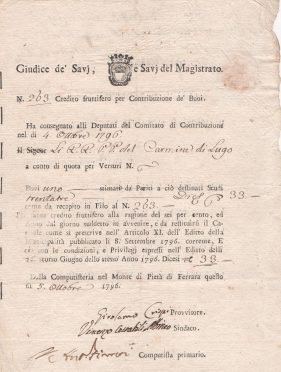 Giudice de' Savj, e Savj del Magistrato.
N. 263 Credito fruttifero per Contribuzione de' Buoi.
Ha consegnato alli Deputati del Comitato di Contribuzione
nel dì 4. Ottobre 1796
il Signor Li RR. PP. del Carmine di Lugo
a conto di quota per Venturi N.
Buoi uno stimato da Periti a ciò destinati Scudi
trentatre Dico 33
come da recapito in Filo al N. 263.
anno credito fruttifero alla ragione del sei per cento, ed
anno dal giorno suddetto in avvenire, e da restituirsi il
come si prescrive nell' Articolo XI. dell' Editto della
Municipalità pubblicato li 8. Settembre 1796. corrente, E
con le condizioni, e Privilegj espressi nell' Editto delli
Giugno dello stesso Anno 1796. Dicesi 33
Dalla Computisteria nel Monte di Pietà di Ferrara questo
dì 5. Ottobre 1796.
Girolamo Provvisore.
Vincenzo Sindaco.
Computista primario.